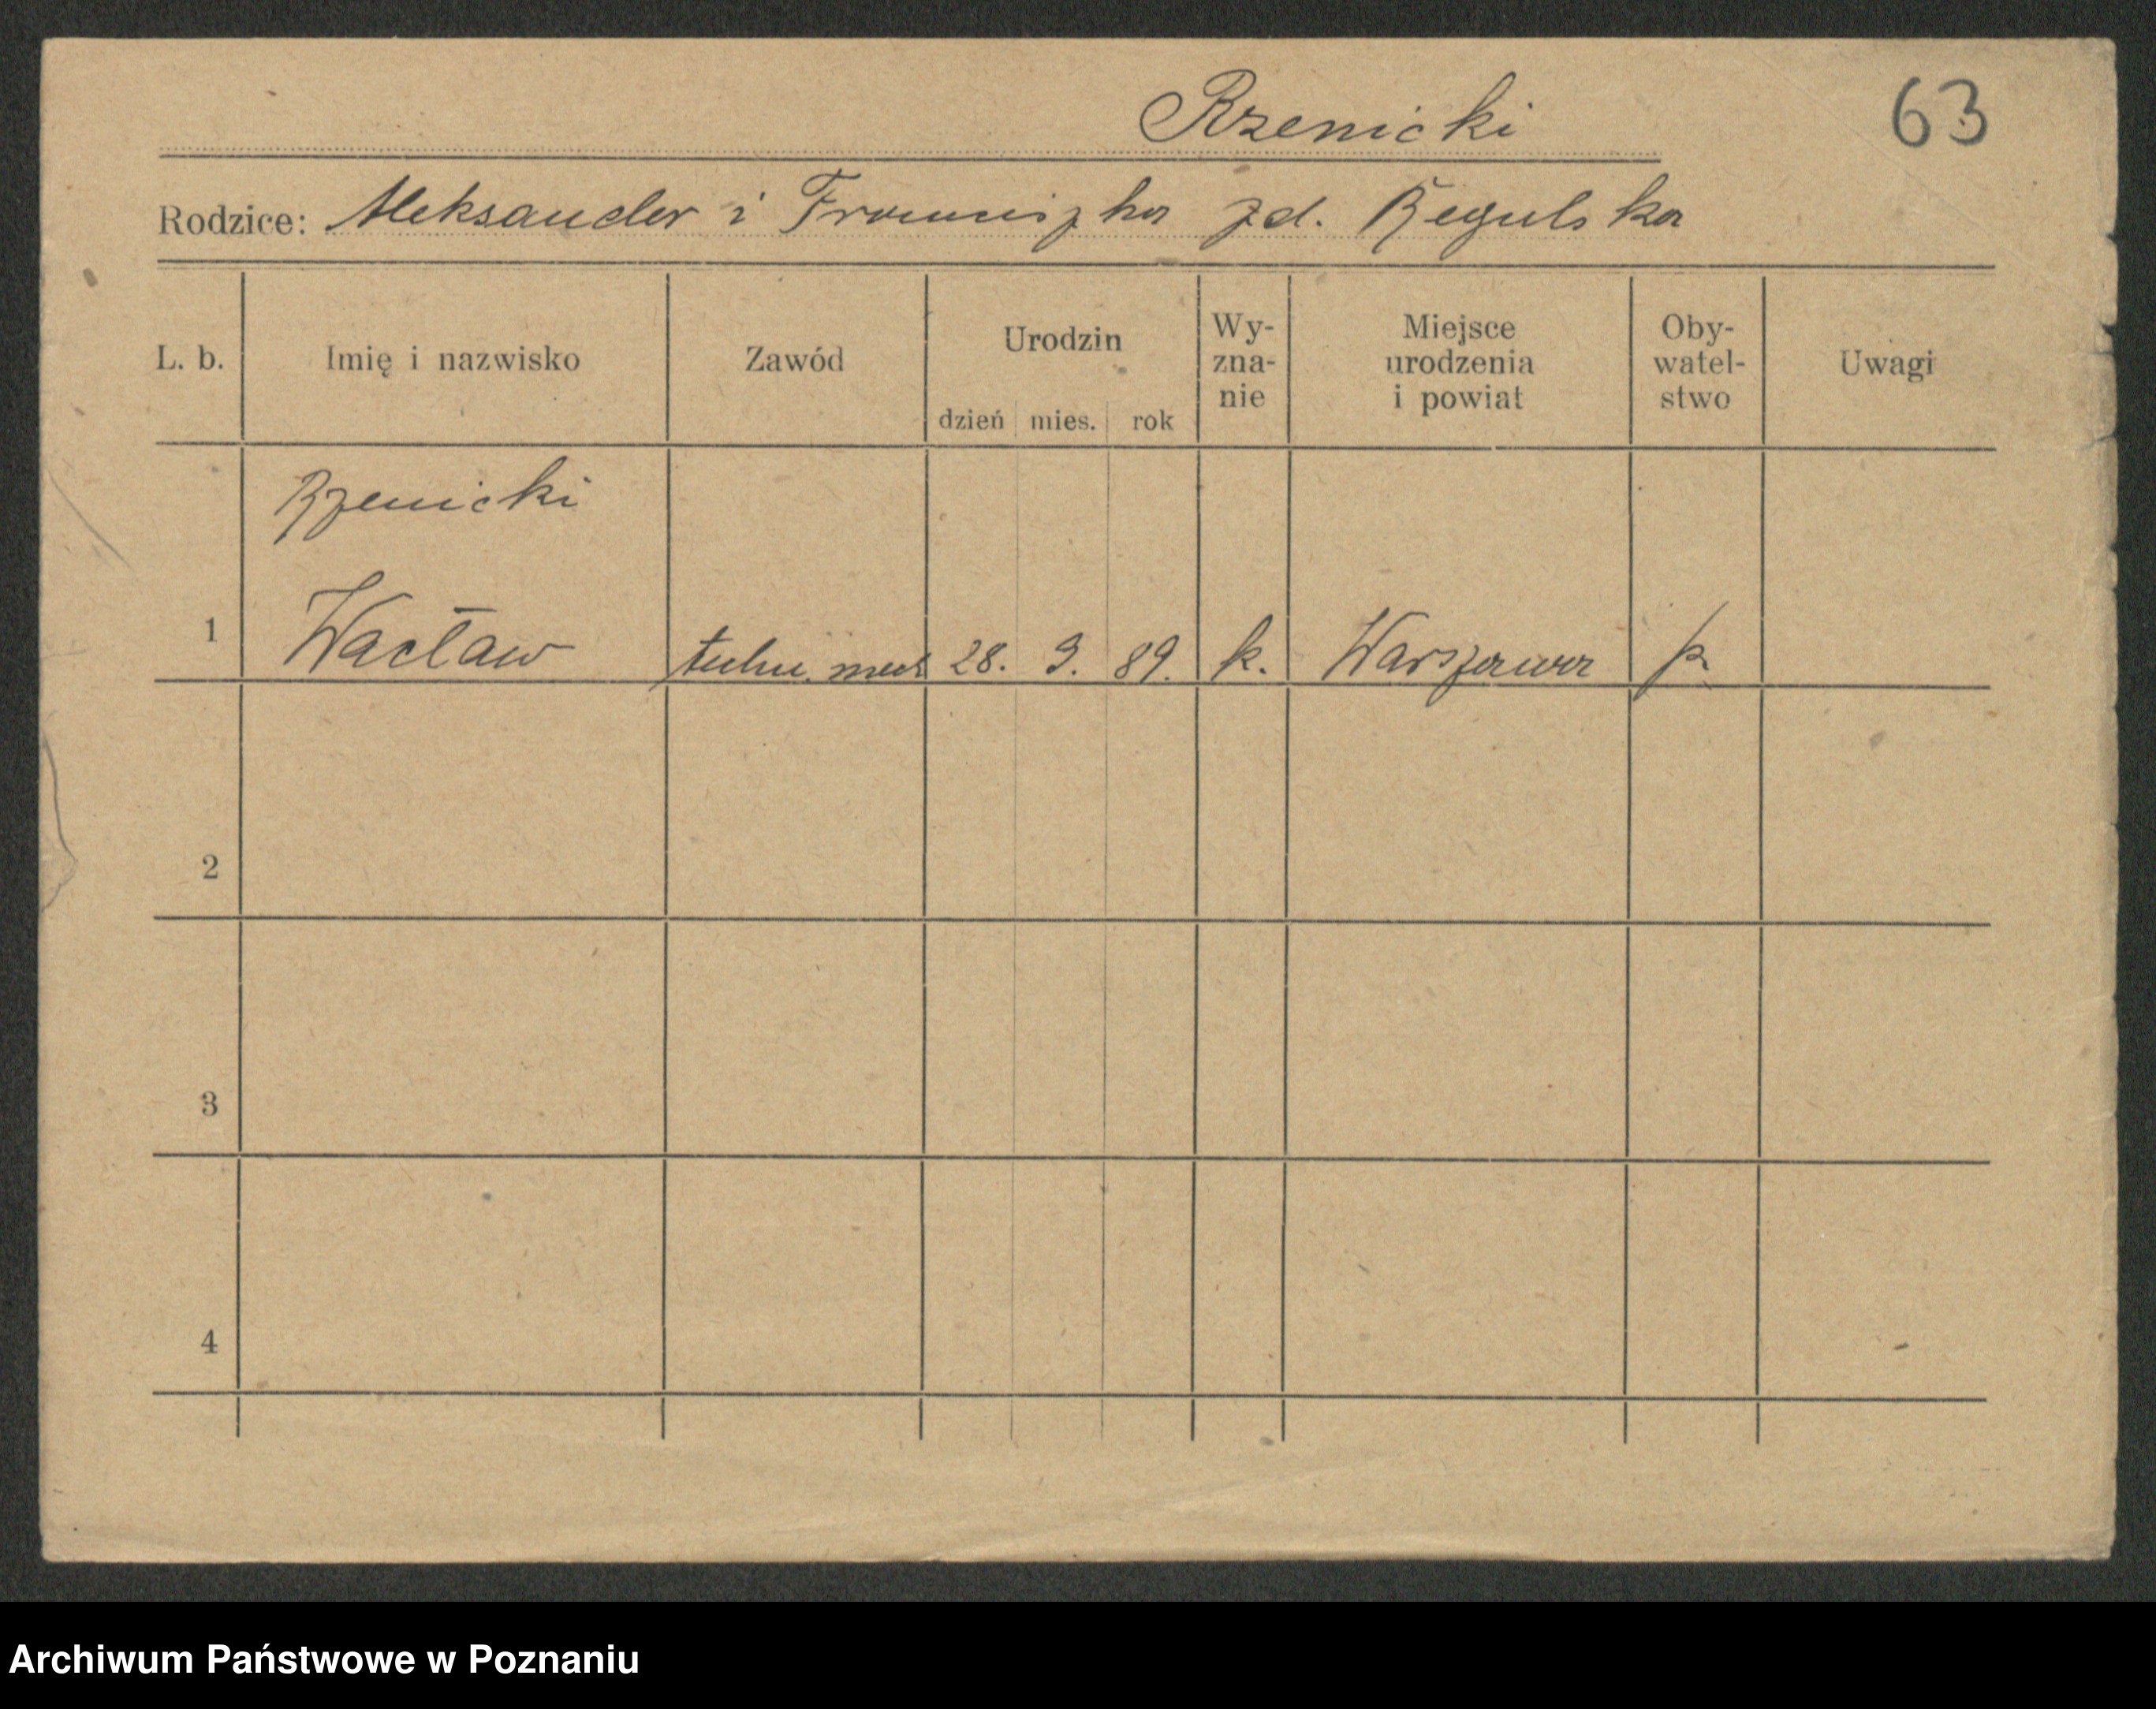 Rzenicki
63
Rodzice: Aleksander i Franciszka zd. Regulska
L. b. Imię i nazwisko Zawód Urodzin dzień mies. rok Wy-zna-nie Miejsce urodzenia i powiat Oby-watel-stwo Uwagi
Rzenicki
1 Wacław techn. mech 28. 9. 89. k. Warszawa p.
2
3
4
Archiwum Państwowe w Poznaniu